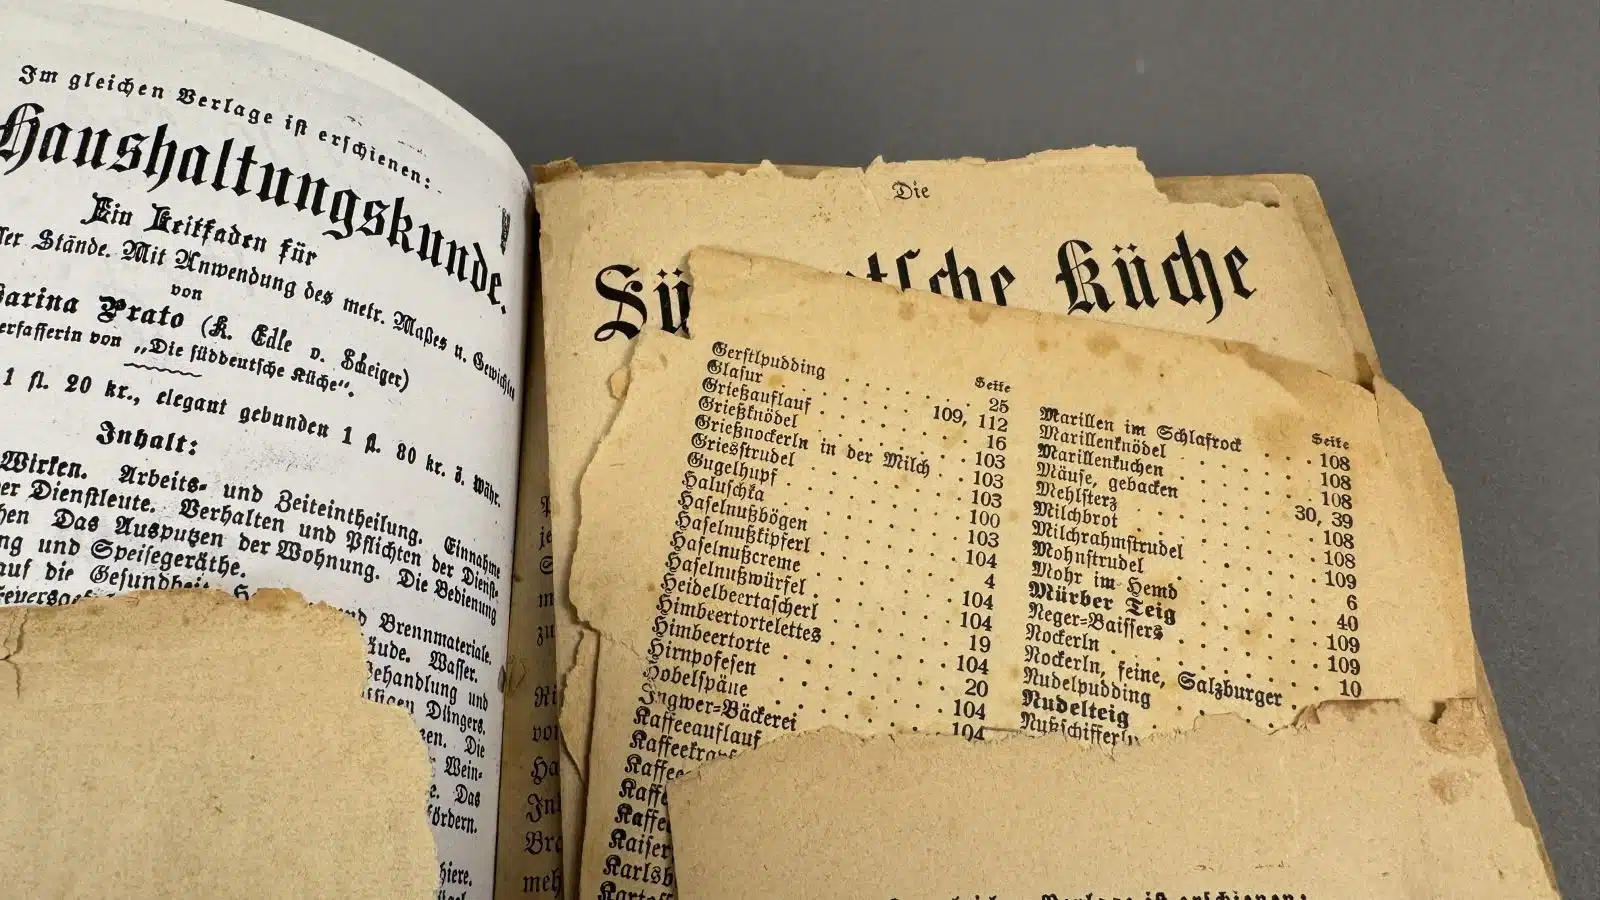 Im gleichen Verlage ist erschienen:
Haushaltungskunde.
Ein Leitfaden für
Stände. Mit Anwendung des metr. Maßes u. Gewichtes
von
Prato (K. Edle v. Scheiger)
von „Die süddeutsche Küche“.
1 fl. 20 kr., elegant gebunden 1 fl. 80 kr. ö. Währ.
Inhalt:
Wirken. Arbeits- und Zeiteintheilung. Einnahme
Dienstleute. Verhalten und Pflichten der Dienst-
Das Ausputzen der Wohnung. Die Bedienung
und Speisegeräthe.
auf die Gesundheit.
Brennmateriale.
Wasser.
Behandlung und
Düngers.
Die
Wein-
Das
Die
Küche
Seite
Gerstlpudding . . . 25
Glasur . . . 109, 112
Grießauflauf . . . 16
Grießknödel . . . 103
Grießnockerln in der Milch . . . 103
Griesstrudel . . . 103
Gugelhupf . . . 100
Haluschka . . . 103
Haselnußbögen . . . 104
Haselnußkipferl . . . 4
Haselnußcreme . . . 104
Haselnußwürfel . . . 104
Heidelbeertascherl . . . 19
Himbeertortelettes . . . 104
Himbeertorte . . . 20
Hirnpofesen . . . 104
Hobelspäne . . . 104
Ingwer-Bäckerei
Kaffeeauflauf
Seite
Marillen im Schlafrock . . . 108
Marillenknödel . . . 108
Marillenkuchen . . . 108
Mäuse, gebacken . . . 30, 39
Mehlsterz . . . 108
Milchbrot . . . 108
Milchrahmstrudel . . . 109
Mohnstrudel . . . 6
Mohr im Hemd . . . 40
Mürber Teig . . . 109
Neger-Baissers . . . 109
Nockerln . . . 10
Nockerln, feine, Salzburger
Nudelpudding
Nudelteig
Nußschifferln